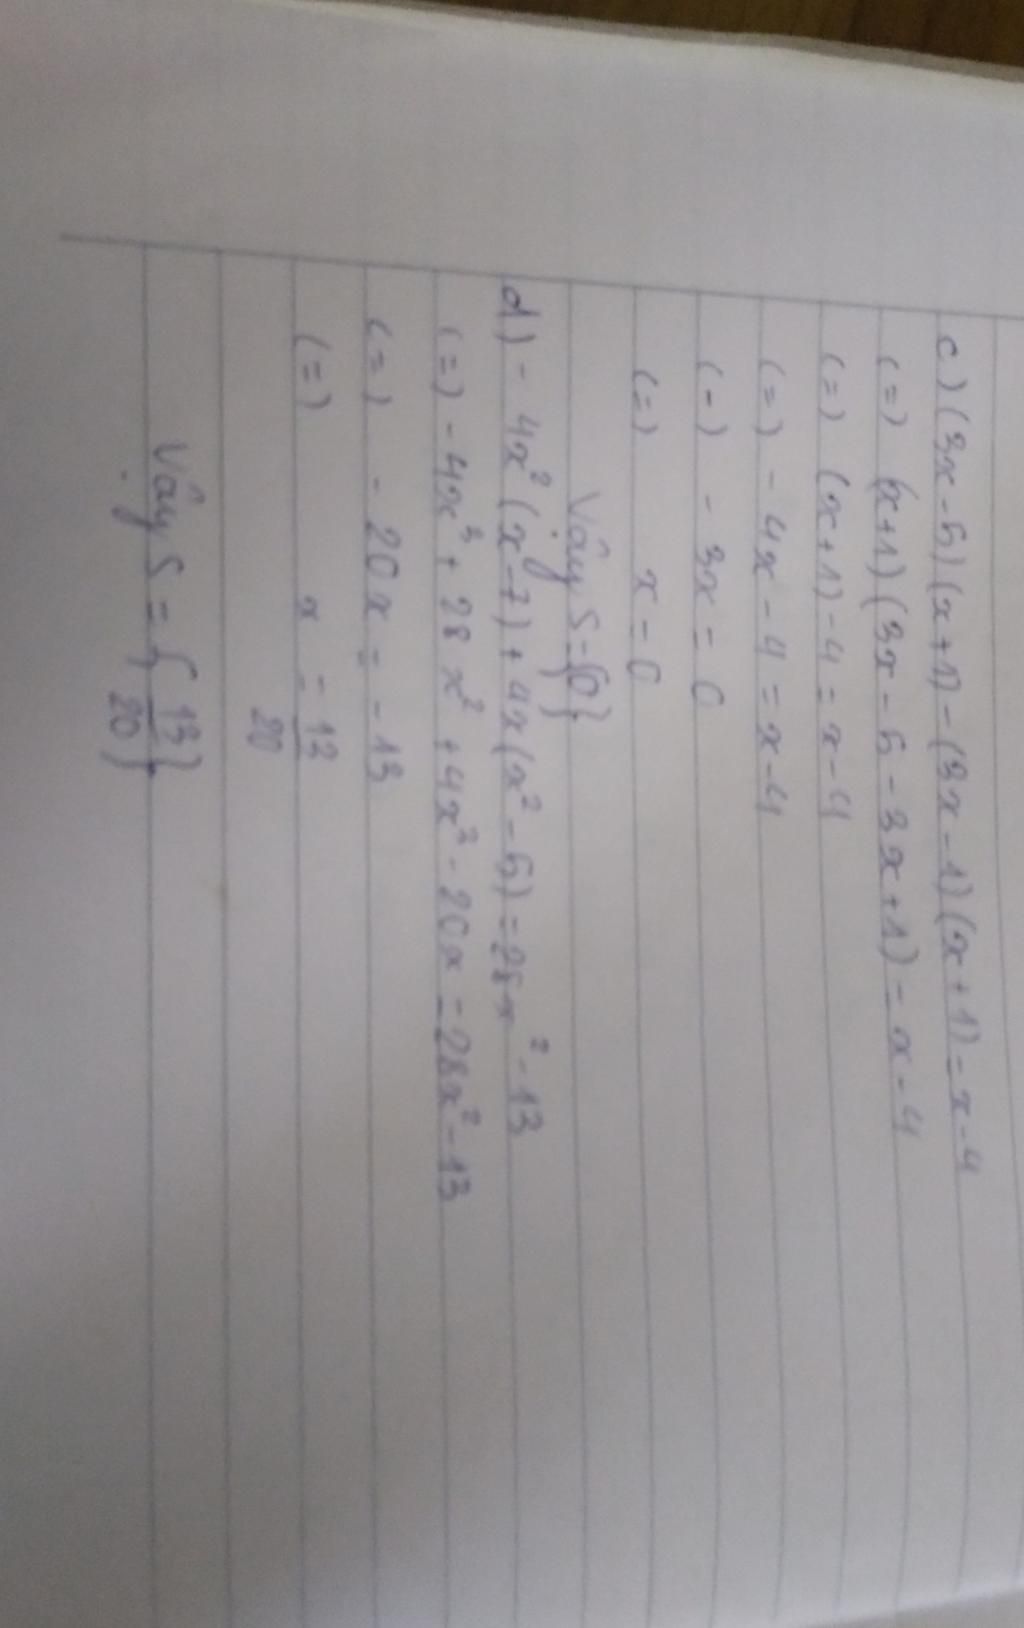 c) (3x-5)(x+1)-(3x-1)(x+1)=x-4
(=) (x+1)(3x-5-3x+1)=x-4
(=) (x+1)-4=x-4
(=) -4x-4=x-4
(-) -3x=0
(=) x=0
Vậy S={0}
d) -4x²(x-7)+4x(x²-5)=28x²-13
(=) -4x³+28x²+4x³-20x=28x²-13
(=) -20x=-13
(=) x=13/20
Vậy S={13/20}